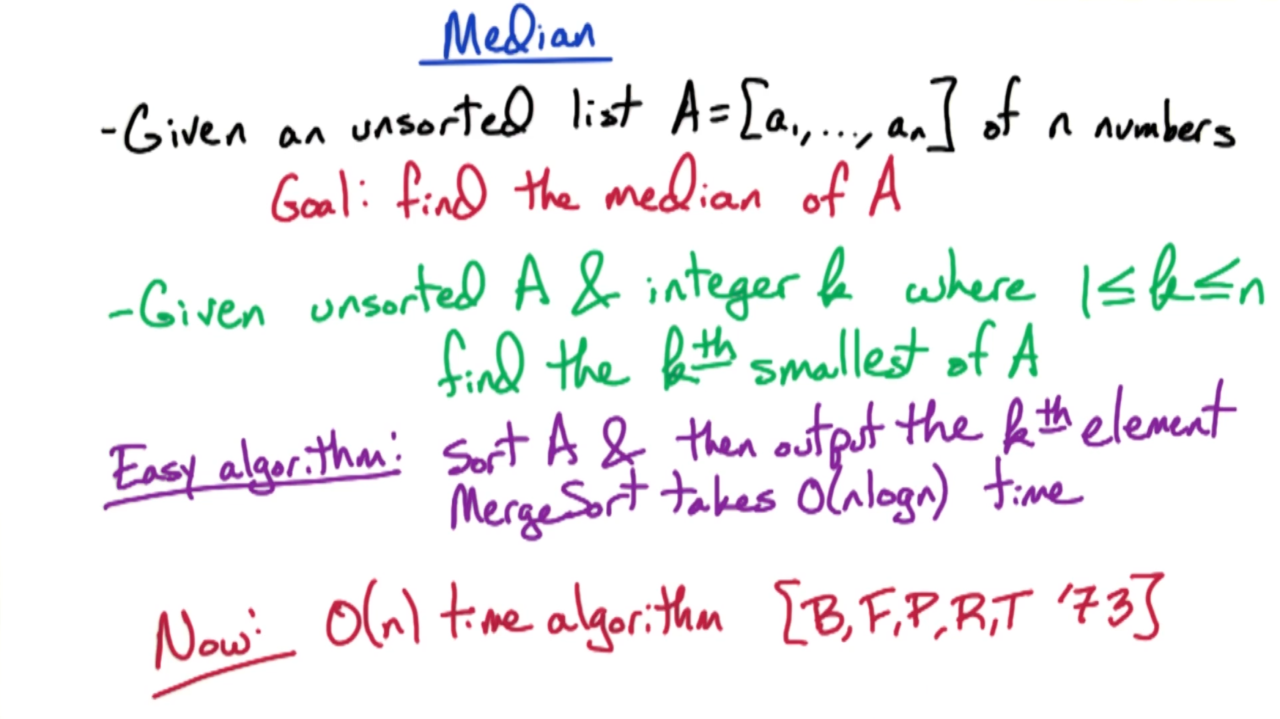 Median
- Given an unsorted list A = [a₁, ..., aₙ] of n numbers
Goal: find the median of A
- Given unsorted A & integer k where 1 ≤ k ≤ n
find the kth smallest of A
Easy algorithm: Sort A & then output the kth element
MergeSort takes O(nlogn) time
Now: O(n) time algorithm [B, F, P, R, T '73]